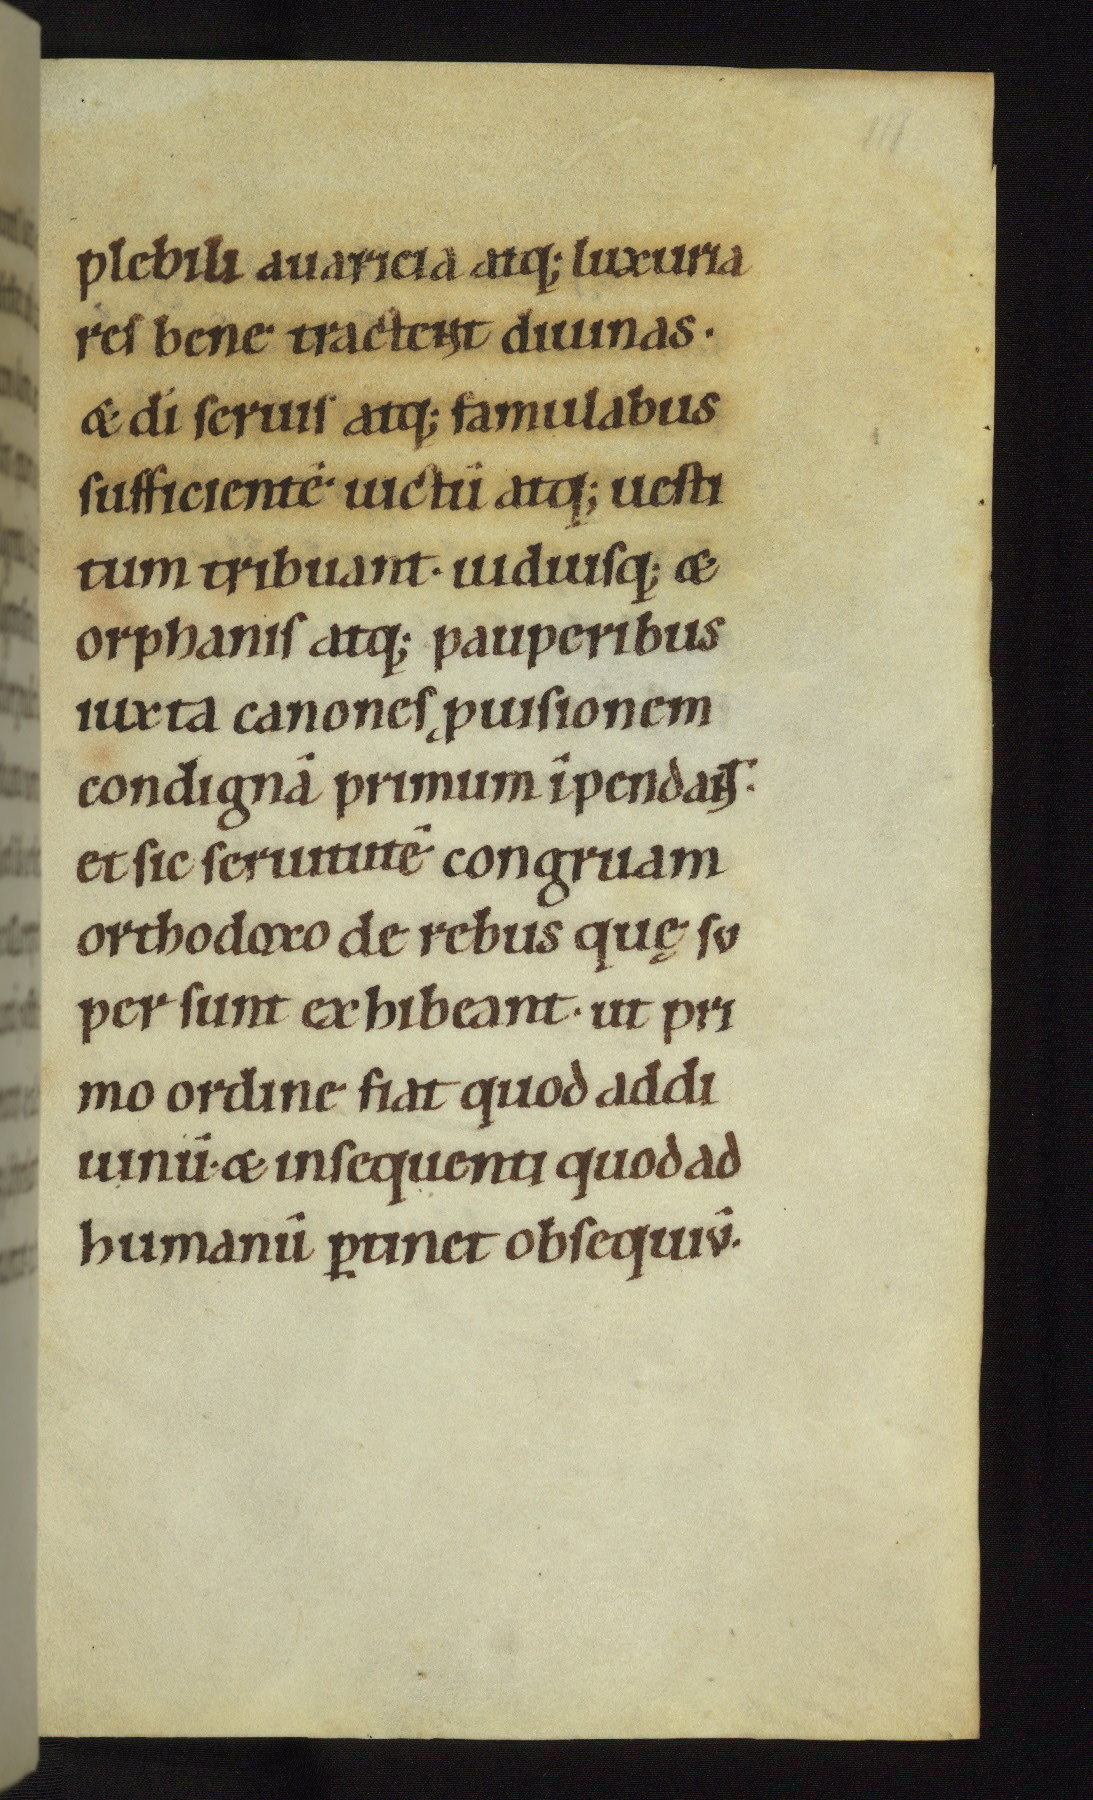 plebili auaricia atq; luxuria
res bene tractent diuinas·
& di seruis atq; famulabus
sufficientē uictū atq; uesti
tum tribuant· uiduisq; &
orphanis atq; pauperibus
iuxta canones ꝓuisionem
condignā primum īpendant·
et sic seruitutē congruam
orthodoxo de rebus quę su
per sunt exhibeant· ut pri
mo ordine fiat quod addi
uinū· & insequenti quod ad
humanū ꝑtinet obsequiū·